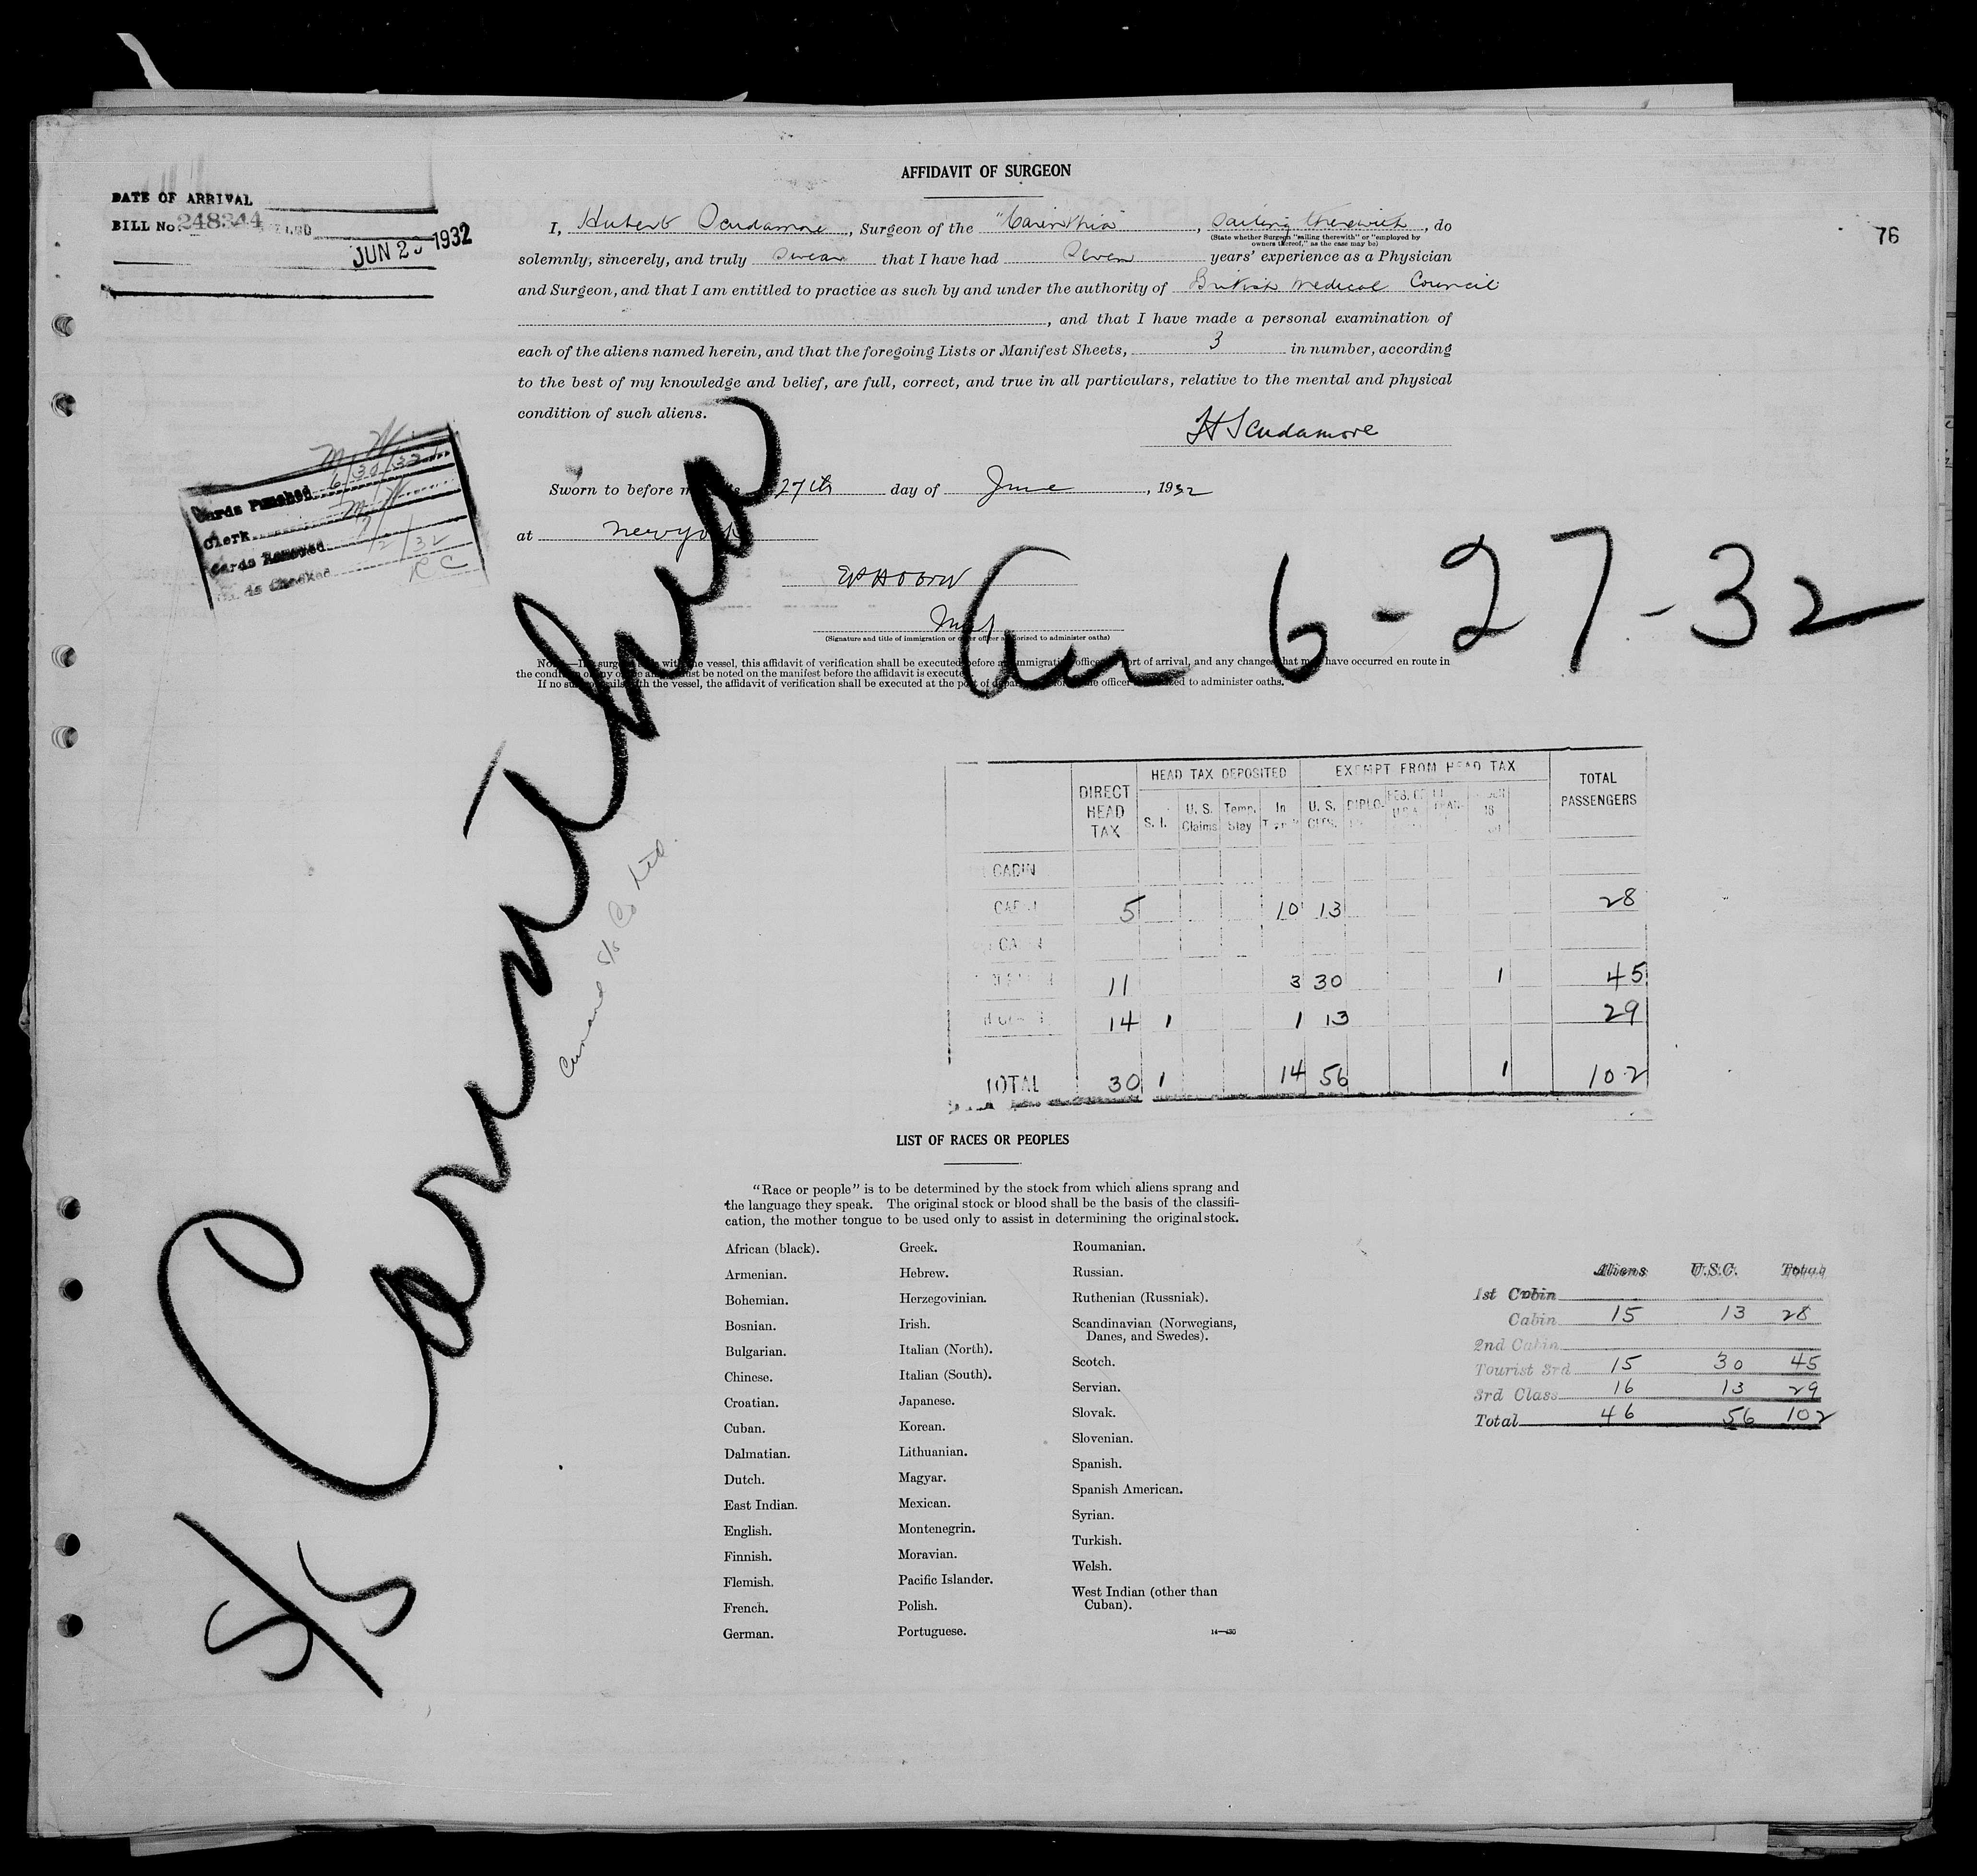 AFFIDAVIT OF SURGEON
DATE OF ARRIVAL
BILL No. 248344
JUN 2 1932
76
I, Hubert Scudamore, Surgeon of the "Carinthia", Sailing therewith, do
(State whether Surgeon "sailing therewith" or "employed by
owners thereof," as the case may be)
solemnly, sincerely, and truly swear that I have had seven years' experience as a Physician
and Surgeon, and that I am entitled to practice as such by and under the authority of British Medical Council
, and that I have made a personal examination of
each of the aliens named herein, and that the foregoing Lists or Manifest Sheets, 3 in number, according
to the best of my knowledge and belief, are full, correct, and true in all particulars, relative to the mental and physical
condition of such aliens.
H Scudamore
Cards Punched 6/30/32
Clerk M W
Cards Removed 7/2/32
Checked R C
Sworn to before 27th day of June, 1932
at New York
(Signature and title of immigration or other officer authorized to administer oaths)
Arr 6-27-32
Note.—If surgeon sails with the vessel, this affidavit of verification shall be executed before an immigration officer at port of arrival, and any changes that may have occurred en route in
the condition of any of the aliens must be noted on the manifest before the affidavit is executed.
If no surgeon sails with the vessel, the affidavit of verification shall be executed at the port of departure before the officer authorized to administer oaths.
S/S Carinthia
Cunard S/S Co Ltd.
DIRECT HEAD TAX
HEAD TAX DEPOSITED
EXEMPT FROM HEAD TAX
TOTAL PASSENGERS
S. I. U. S. Claims Temp. Stay In U. S. DIPLO- 16
CABIN
CABIN 5 10 13 28
CABIN
11 3 30 1 45
14 1 1 13 29
TOTAL 30 1 14 56 1 102
LIST OF RACES OR PEOPLES
"Race or people" is to be determined by the stock from which aliens sprang and
the language they speak. The original stock or blood shall be the basis of the classifi-
cation, the mother tongue to be used only to assist in determining the original stock.
African (black).
Armenian.
Bohemian.
Bosnian.
Bulgarian.
Chinese.
Croatian.
Cuban.
Dalmatian.
Dutch.
East Indian.
English.
Finnish.
Flemish.
French.
German.
Greek.
Hebrew.
Herzegovinian.
Irish.
Italian (North).
Italian (South).
Japanese.
Korean.
Lithuanian.
Magyar.
Mexican.
Montenegrin.
Moravian.
Pacific Islander.
Polish.
Portuguese.
Roumanian.
Russian.
Ruthenian (Russniak).
Scandinavian (Norwegians,
Danes, and Swedes).
Scotch.
Servian.
Slovak.
Slovenian.
Spanish.
Spanish American.
Syrian.
Turkish.
Welsh.
West Indian (other than
Cuban).
14—430
Aliens U.S.C. Total
1st Cabin
Cabin 15 13 28
2nd Cabin
Tourist 3rd 15 30 45
3rd Class 16 13 29
Total 46 56 102